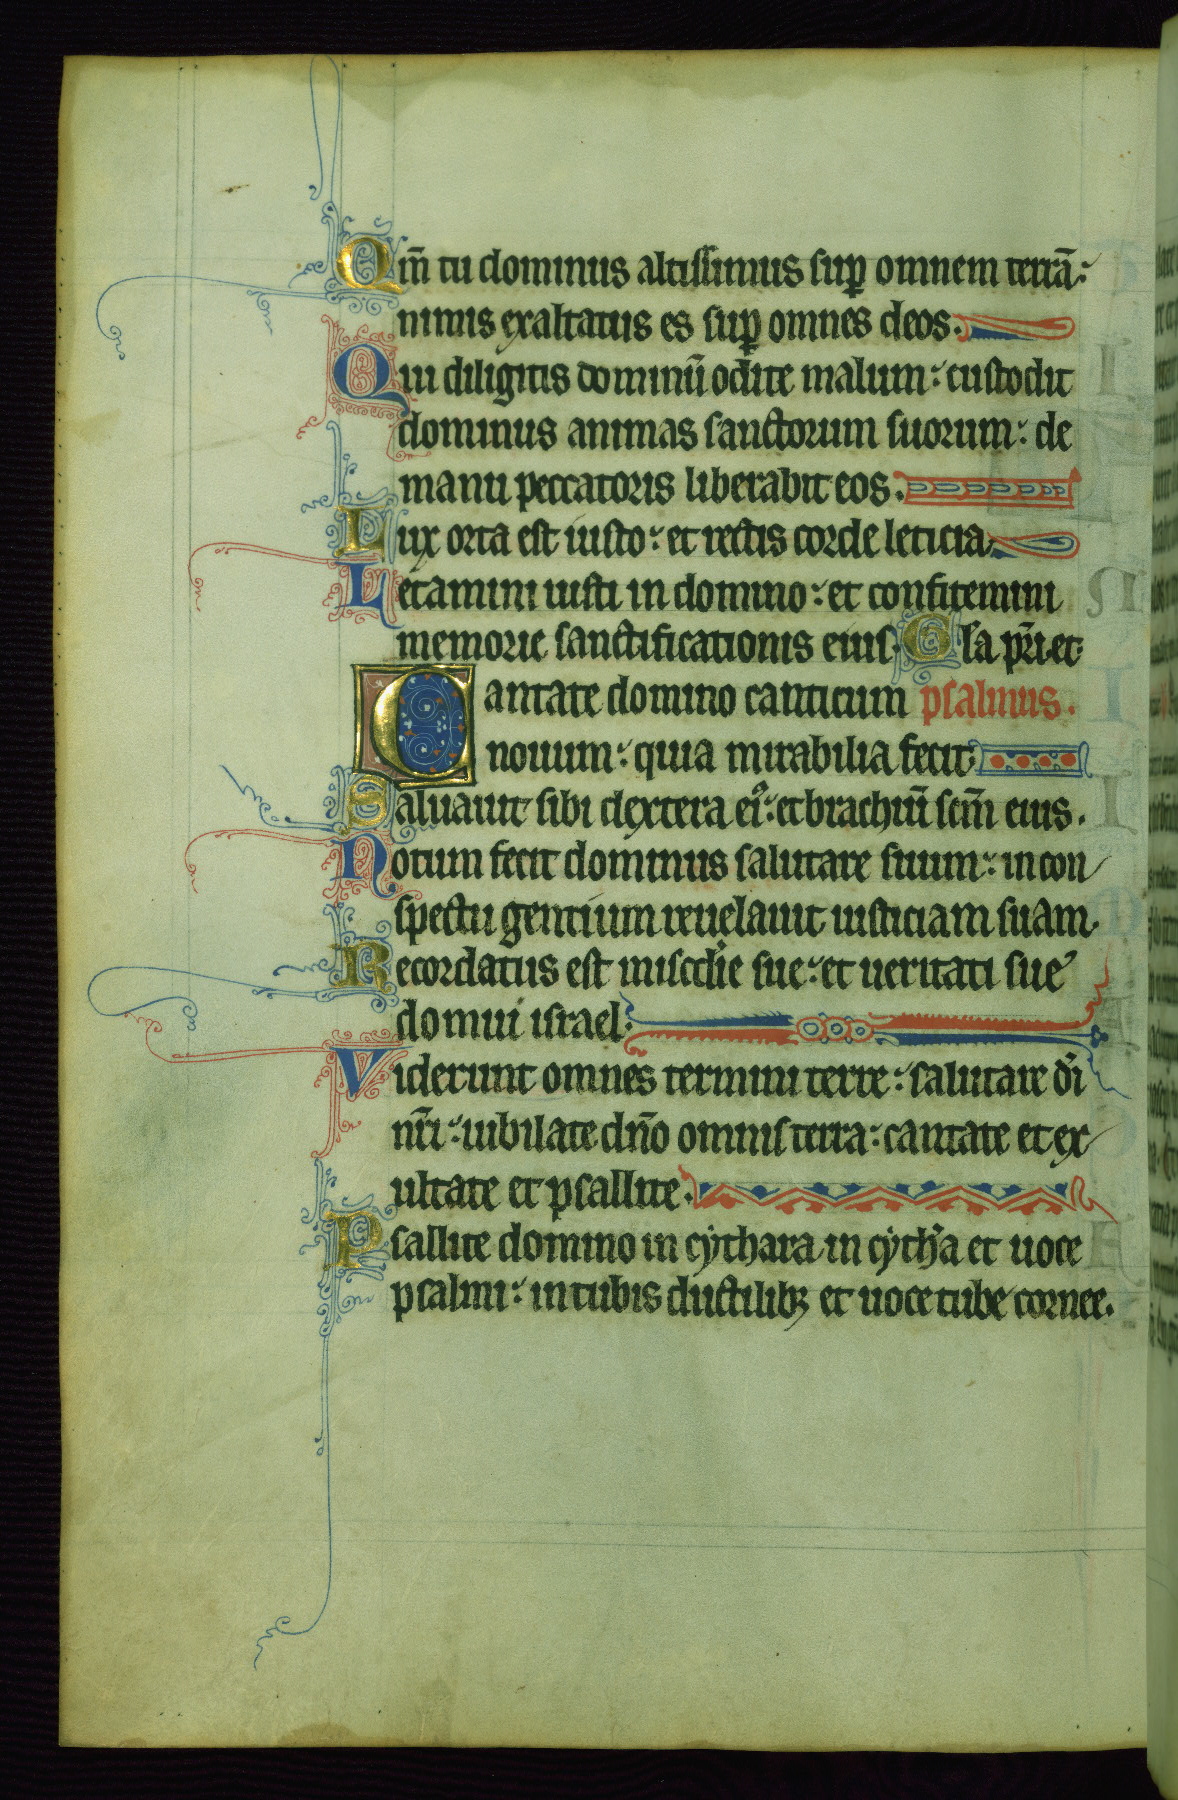 Qm̄ tu dominus altissimus suꝑ omnem terrā:
nimis exaltatus es suꝑ omnes deos.
Qui diligitis dominū odite malum: custodit
dominus animas sanctorum suorum: de
manu peccatoris liberabit eos.
Lux orta est iusto: et rectis corde leticia.
Letamini iusti in domino: et confitemini
memorie sanctificationis eius. Gl'a pr̄i et
Cantate domino canticum psalmus.
nouum: quia mirabilia fecit.
Saluauit sibi dextera ei᷒: et brachiū scm̄ eius.
Notum fecit dominus salutare suum: in con
spectu gentium reuelauit iusticiam suam.
Recordatus est miscd'ie sue: et ueritati sue
domui israel.
Viderunt omnes termini terre: salutare d'i
nr̄i: iubilate dn̄o omnis terra: cantate et ex
ultate et psallite.
Psallite domino in cythara in cyth'a et uoce
psalmi: in tubis ductilibꝫ et uoce tube cornee.